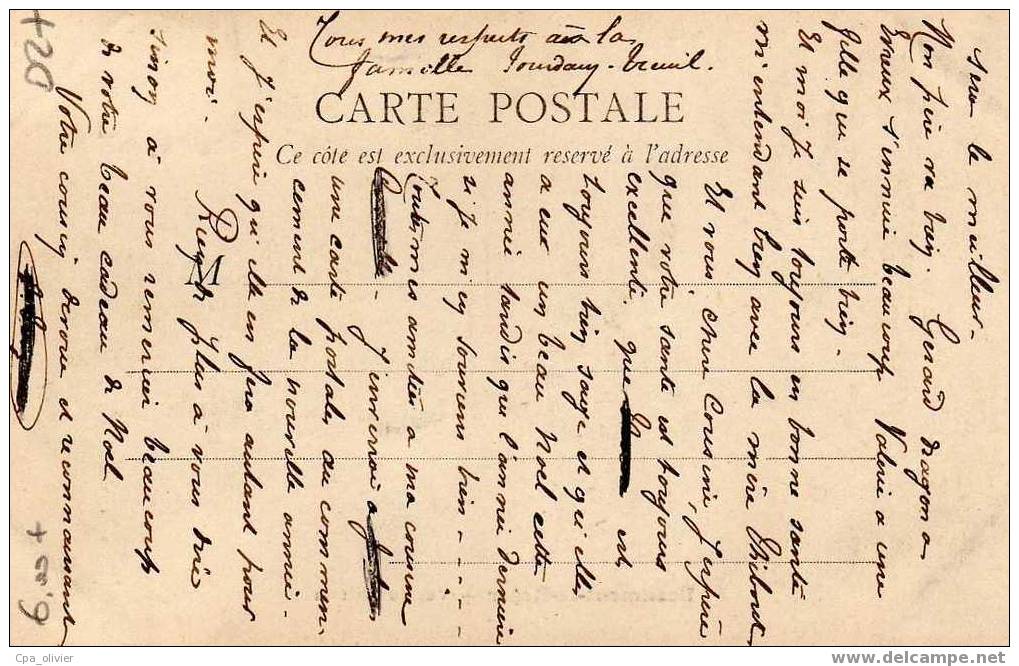 Tous mes respects à la
famille Jourdan-Treuil.
CARTE POSTALE
Ce côté est exclusivement reservé à l'adresse
M
sera le meilleur.
Mon père va bien. Gérard nagon a
Evreux s'ennuie beaucoup Valerie a une
fille qui se porte bien.
Et moi je suis toujours en bonne santé
m'entendant bien avec la mère Thibout
Et vous, chère Cousine, j'espère
que votre santé est toujours
excellente. que est
toujours bien sage et qu'elle
a eut un beau Noël cette
année tandis que l'année dernière
si je m'en souviens bien - - - -
Toutes mes amitiés a ma cousine
J'enverrai a
une carte postale au commen-
cement de la nouvelle année.
Et j'espère qu'elle en fera autant pour
moi.
Rien plus à vous dire
sinon à vous remercier beaucoup
de votre beau cadeau de Noël
Votre cousin devoué et reconnaissant
+20
Cpa_olivier
http://www.delcampe.net